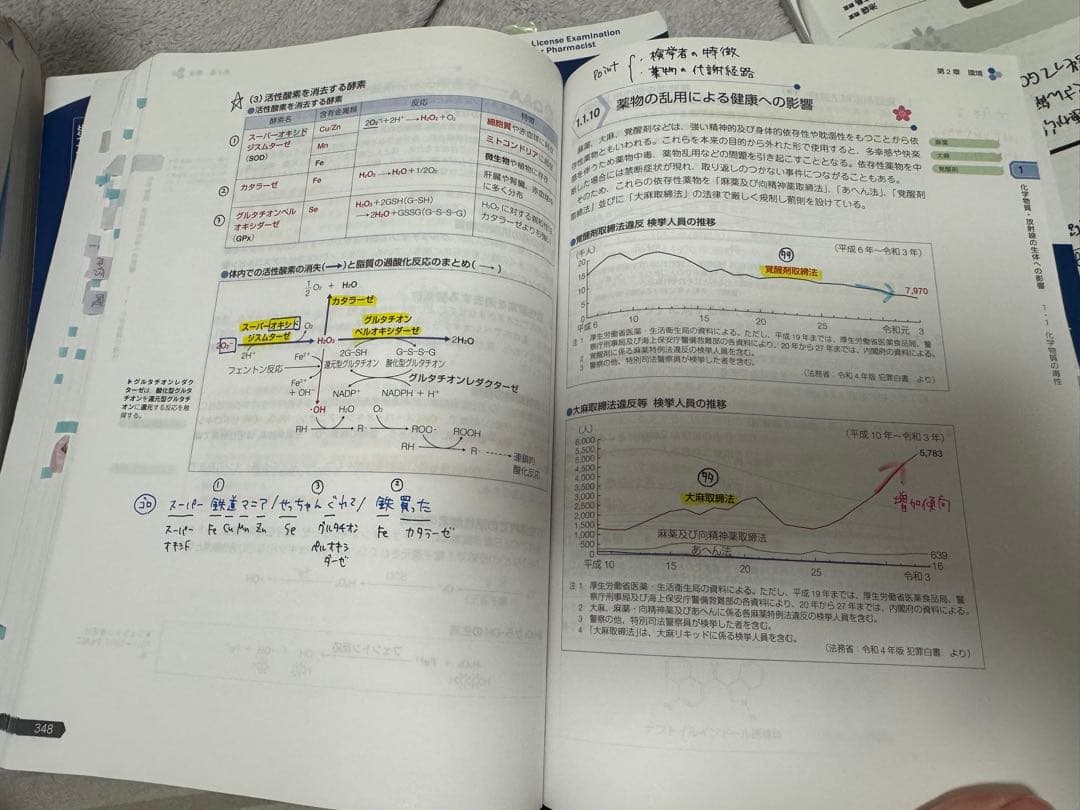 License Examination
Pharmacist
(3) 活性酸素を消去する酵素
●活性酸素を消去する酵素
酵素名 含有金属類 反応 特徴
① スーパーオキシドジスムターゼ (SOD)
Cu/Zn
Mn
Fe
2O₂⁻+2H⁺→H₂O₂+O₂
細胞質や赤血球に
ミトコンドリアに
微生物や植物に存在
② カタラーゼ Fe H₂O₂→H₂O+1/2O₂
肝臓や腎臓、赤血球
に多く分布
グルタチオンペルオキシダーゼ (GPx)
Se
H₂O₂+2GSH(G-SH)
→2H₂O+GSSG(G-S-S-G)
H₂O₂に対する親和性は
カタラーゼよりも強い
●体内での活性酸素の消失(→)と脂質の過酸化反応のまとめ(→)
1/2 O₂ + H₂O
カタラーゼ
スーパーオキシド
ジスムターゼ
O₂
グルタチオン
ペルオキシダーゼ
2O₂⁻
H₂O₂
2H₂O
2H⁺
Fe²⁺
2G-SH
還元型グルタチオン
G-S-S-G
酸化型グルタチオン
フェントン反応
グルタチオンレダクターゼ
Fe³⁺
+ OH⁻
NADP⁺
NADPH + H⁺
・OH
H₂O
O₂
RH
R・
ROO・
ROOH
RH
R・
連鎖的
酸化反応
▶グルタチオンレダク
ターゼは、酸化型グルタ
チオンを還元型グルタチ
オンに還元する反応を触
媒する。
① ③ ②
ゴロ スーパー 鉄道マニア/せっちゃん ぐれて/ 鉄 買った
スーパー Fe Cu Mn Zn Se グルタチオン Fe カタラーゼ
オキシド ペルオキシ
ダーゼ
348
Point
・検挙者の特徴
・薬物の代謝経路
第2章 環境
1.1.10 薬物の乱用による健康への影響
麻薬、大麻、覚醒剤などは、強い精神的及び身体的依存性や耽溺性をもつことから依
存性薬物ともいわれる。これらを本来の目的から外れた形で使用すると、多幸感や快楽
感を伴うため薬物中毒、薬物乱用などの問題を引き起こすこととなる。依存性薬物を中
断した場合には禁断症状が現れ、取り返しのつかない事件につながることもある。
そのため、これらの依存性薬物を「麻薬及び向精神薬取締法」、「あへん法」、「覚醒剤
取締法」並びに「大麻取締法」の法律で厳しく規制し罰則を設けている。
麻薬
大麻
覚醒剤
1
化学物質・放射線の生体への影響
1-1 化学物質の毒性
●覚醒剤取締法違反 検挙人員の推移
(千人)
(平成6年~令和3年)
20
15
10
5
0
覚醒剤取締法
7,970
平成6 10 15 20 25 令和元 3
注 1 厚生労働省医薬・生活衛生局の資料による。ただし、平成19年までは、厚生労働省医薬食品局、警
察庁刑事局及び海上保安庁警備救難部の各資料により、20年から27年までは、内閣府の資料による。
2 覚醒剤に係る麻薬特例法違反の検挙人員を含む。
3 警察の他、特別司法警察員が検挙した者を含む。
(法務省:令和4年版 犯罪白書 より)
●大麻取締法違反等 検挙人員の推移
(人)
(平成10年~令和3年)
6,000
5,500
5,000
4,500
4,000
3,500
3,000
2,500
2,000
1,500
1,000
500
0
大麻取締法
5,783
増加傾向
麻薬及び向精神薬取締法
あへん法
639
16
平成10 15 20 25 令和3
注 1 厚生労働省医薬・生活衛生局の資料による。ただし、平成19年までは、厚生労働省医薬食品局、警
察庁刑事局及び海上保安庁警備救難部の各資料により、20年から27年までは、内閣府の資料による。
2 大麻、麻薬・向精神薬及びあへんに係る各麻薬特例法違反の検挙人員を含む。
3 警察の他、特別司法警察員が検挙した者を含む。
4 「大麻取締法」は、大麻リキッドに係る検挙人員を含む。
(法務省:令和4年版 犯罪白書 より)